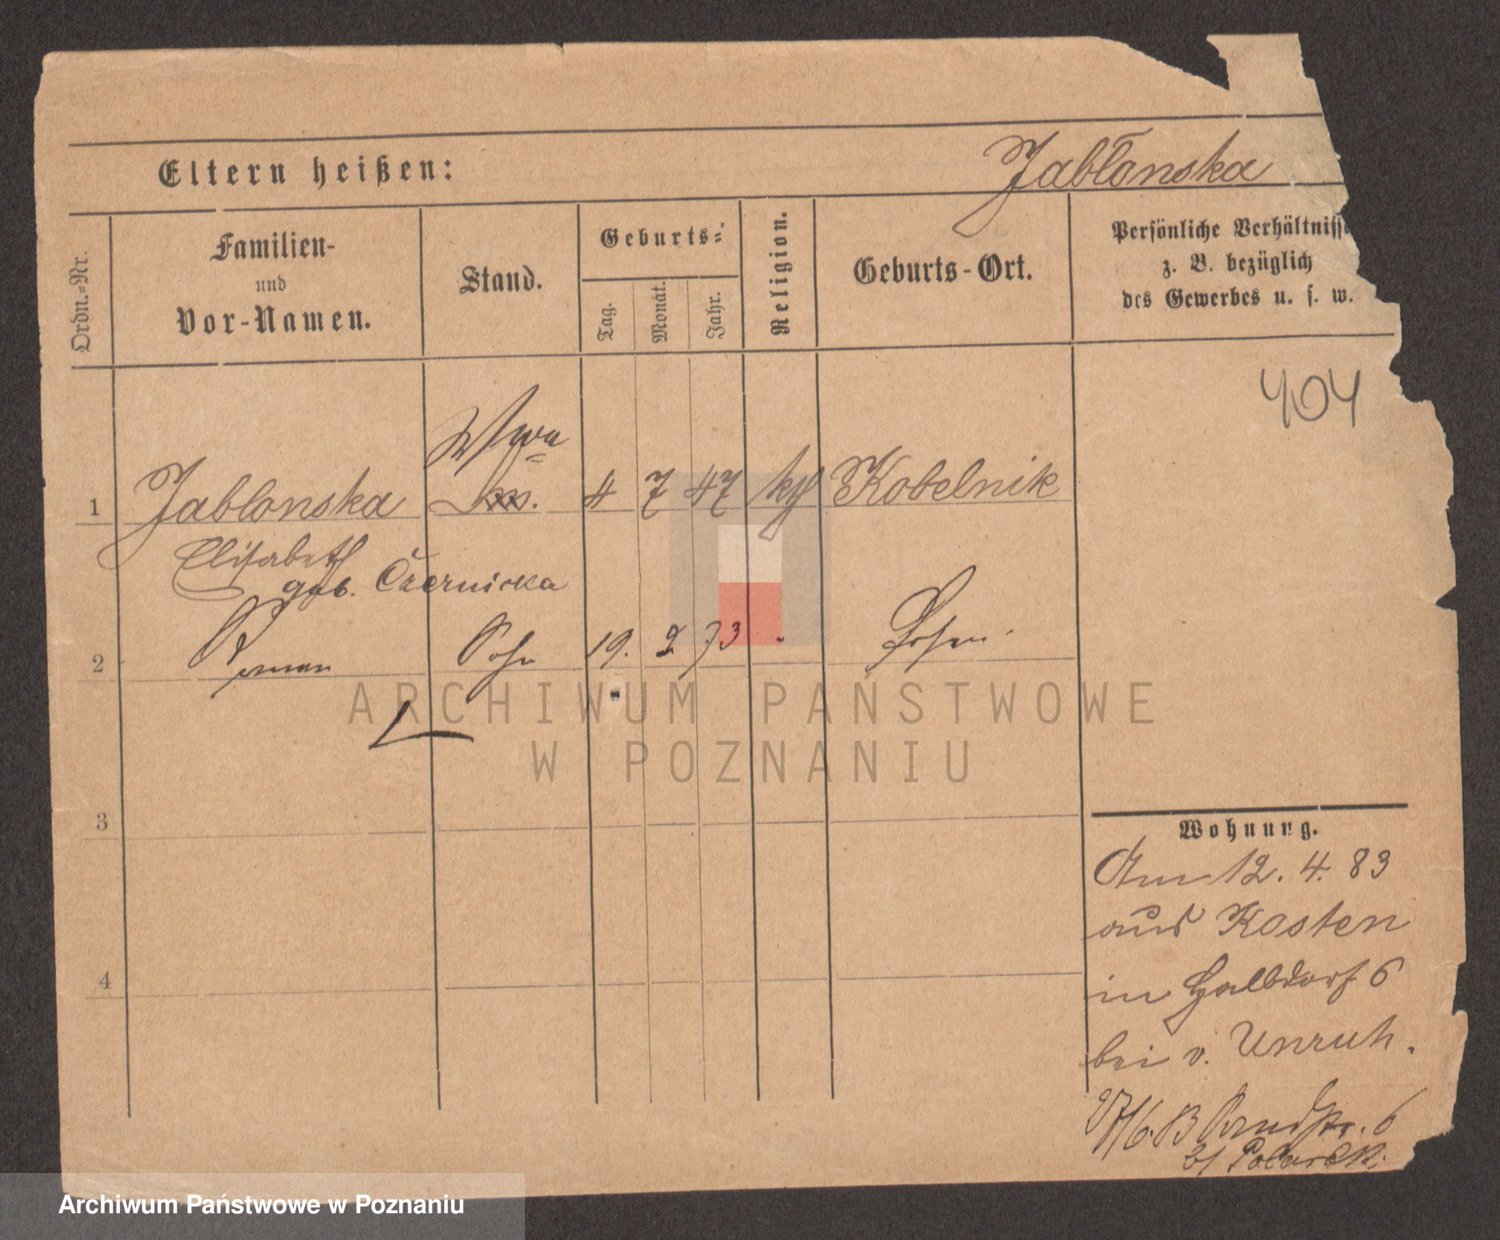 Eltern heißen:
Jabłonska
Ordn.-Nr.
Familien-
und
Vor-Namen.
Stand.
Geburts-
Tag.
Monat.
Jahr.
Religion.
Geburts-Ort.
Persönliche Verhältnisse
z. B. bezüglich
des Gewerbes u. s. w.
404
Wwe
1 Jablonska 4 7 47 kth Kobelnik
Elisabeth
geb. Czernicka
2 Roman Sohn 19. 2 73 Posen.
3
4
Wohnung.
Am 12. 4. 83
aus Kosten
in Halbdorf 6
bei v. Unruh.
6
b/
ARCHIWUM PAŃSTWOWE
W POZNANIU
Archiwum Państwowe w Poznaniu